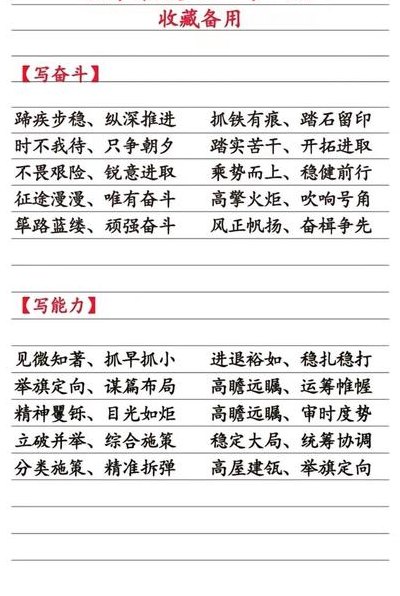 收藏备用
【写奋斗】
蹄疾步稳、纵深推进 抓铁有痕、踏石留印
时不我待、只争朝夕 踏实苦干、开拓进取
不畏艰险、锐意进取 乘势而上、稳健前行
征途漫漫、唯有奋斗 高擎火炬、吹响号角
筚路蓝缕、顽强奋斗 风正帆扬、奋楫争先
【写能力】
见微知著、抓早抓小 进退裕如、稳扎稳打
举旗定向、谋篇布局 高瞻远瞩、运筹帷幄
精神矍铄、目光如炬 高瞻远瞩、审时度势
立破并举、综合施策 稳定大局、统筹协调
分类施策、精准拆弹 高屋建瓴、举旗定向